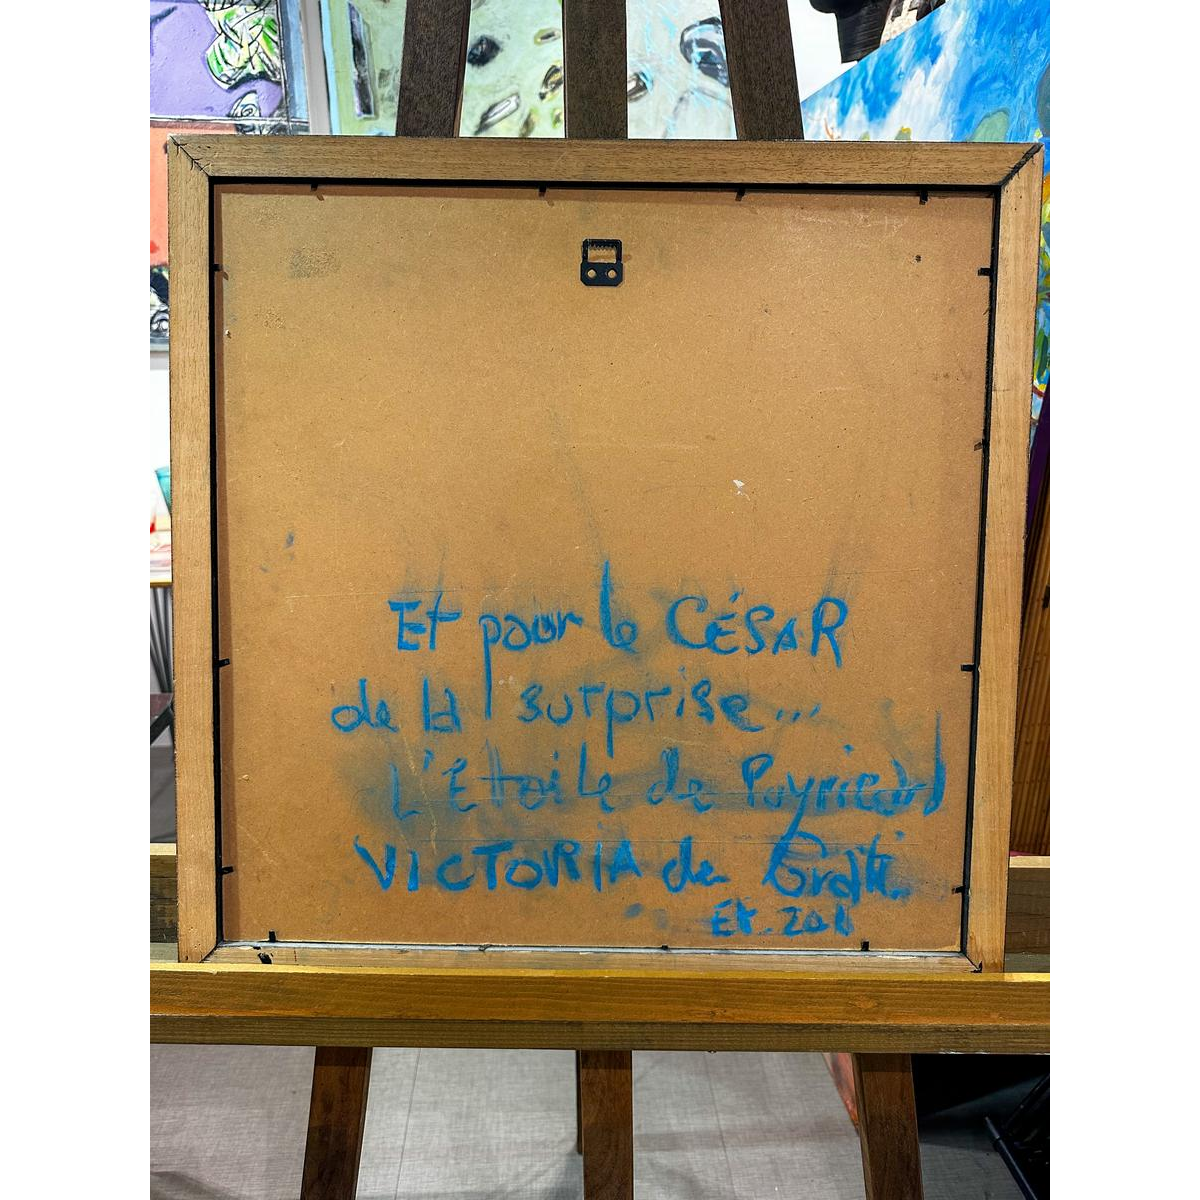 Et pour le CÉSAR
de la surprise...
L'Etoile de Puyricard
VICTORIA de
Et. 2011